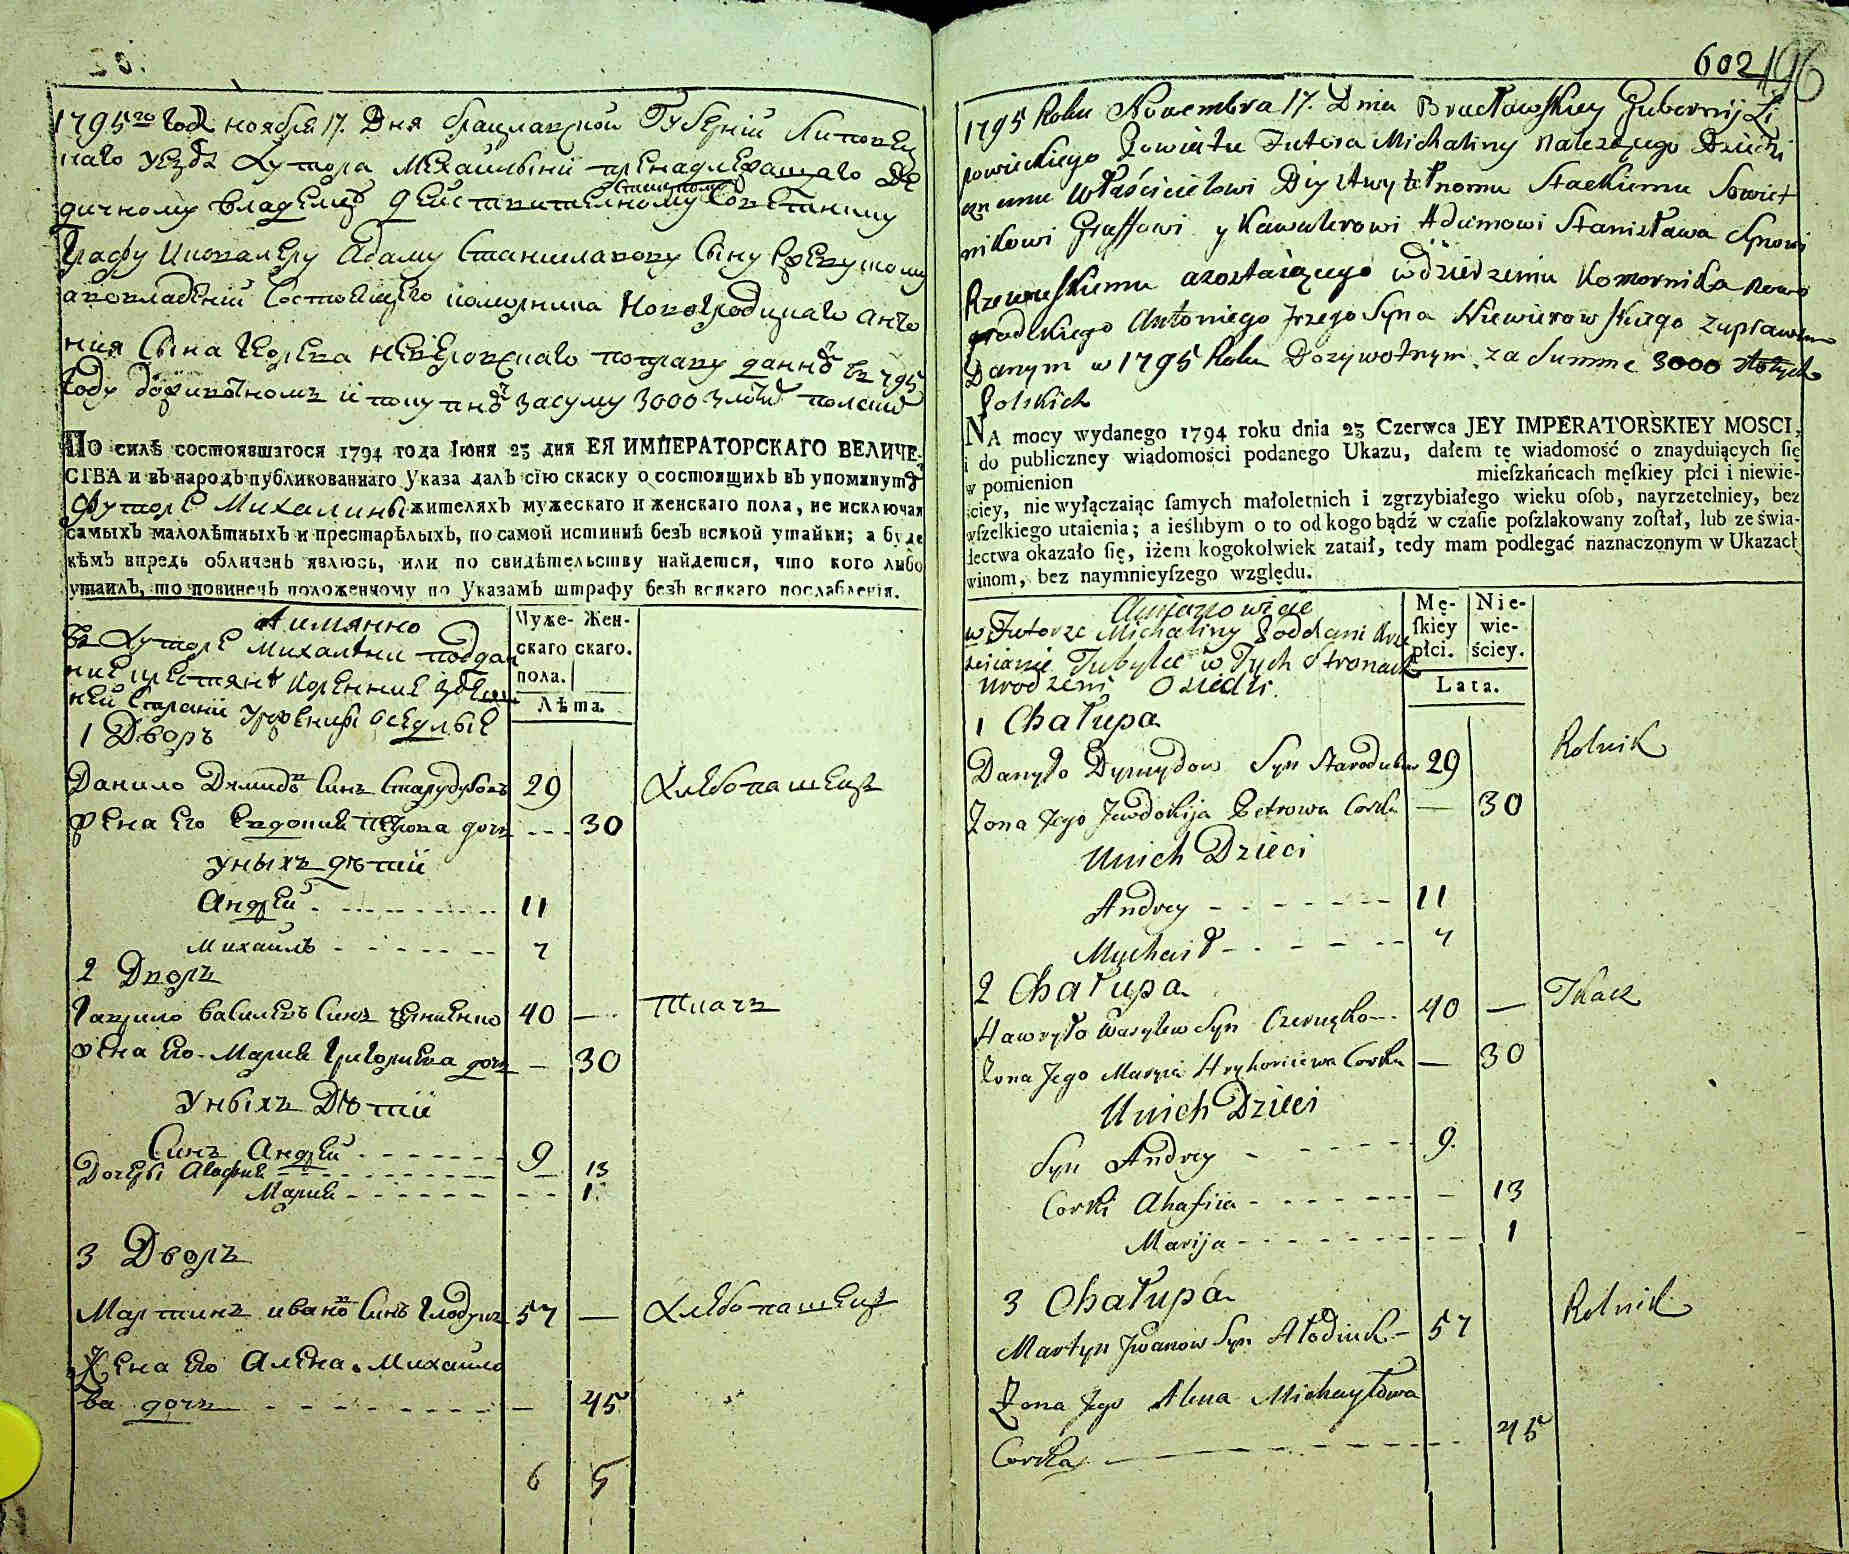 602 196
1795го Году ноября 17. Дня Брацлавской Губернiи Липовец
каго уезда Хутора Михайлыни принадлежащаго Де
дичному владелцу Действителному Статскому Советнику
Графу Икавалеру Адаму Станиславову Сыну Ржевускому
авовладенiи Состоящаго коморника Новогродцкаго Анто
нiя Сына Неверовскаго поправу данно в 795
Году доживотномъ 3000 злотых полских
По силѣ состоявшагося 1794 года Iюня 23 дня ЕЯ ИМПЕРАТОРСКАГО ВЕЛИЧЕ-
СТВА и въ народъ публикованнаго Указа далъ сїю скаску о состоящихъ въ упомянутѣ
Футорѣ Михалины жителяхъ мужескаго и женскаго пола, не исключая
самыхъ малолѣтныхъ и престарѣлыхъ, по самой истиннѣ безъ всякой утайки; а буде
кѣмъ впредь обличенъ явлюсь, или по свидѣтельству найдется, что кого либо
утаилъ, то повиненъ положенному по Указамъ штрафу безъ всякаго послабленїя.
Аимянно
Вх Хуторе Михалини поддан
ние крестяне коренние здеш
ней Сторони урожении оседлые
Муже- Жен-
скаго скаго.
пола.
Лѣта.
1 Дворъ
Данило Демидов Синъ Стародубовъ 29 Хлебопашецъ
Жена Его Евдокия Петрова дочь - - - 30
Уныхъ дѣтий
Андрей - - - - - - 11
Михаилъ - - - - - 7
2 Дворъ
Гаврило Василевъ Синъ 40 — Ткачъ
Жена Его Мария Григориева дочь — 30
Уныхъ Дѣтий
Синъ Андрей - - - - - - 9
Дочери Агафия - - - - - - — 13
Мария - - - - - - - - 1
3 Дворъ
Мартинъ Иванов Синъ Глодукъ 57 — Хлебопашецъ
Жена Его Алена Михайло
ва дочь - - - - - - - — 45
6 5
1795 Roku Novembra 17. Dnia Bracławskiey Gubernij Li
powieckiego Powiatu Futora Michaliny Należącego Dziedzi
cznemu Właścicielowi Dieystwytelnomu Stackiemu Sowiet
nikowi Graffowi y Kawalerowi Adamowi Stanisława Synowi
Rzewuskiemu azostaiącego wdzierżeniu Komornika Nowo
grodzkiego Antoniego Syna Niewierowskiego zuprawem
Danym w 1795 Roku Dożywotnym za Summe 3000 złotych
Polskich
NA mocy wydanego 1794 roku dnia 23 Czerwca JEY IMPERATORSKIEY MOSCI,
i do publiczney wiadomości podanego Ukazu, dałem tę wiadomość o znayduiących się
w pomienion mieſzkańcach męſkiey płci i niewie-
ściey, nie wyłączaiąc ſamych małoletnich i zgrzybiałego wieku oſob, nayrzetelniey, bez
wſzelkiego utaienia; a ieślibym o to od kogo bądź w czaſie poſzlakowany zoſtał, lub ze świa-
dectwa okazało ſię, iżem kogokolwiek zataił, tedy mam podlegać naznaczonym w Ukazach
winom, bez naymnieyſzego względu.
Amianowicie
w Futorze Michaliny Poddani Krze
ścianie Tubylce w Tych Stronach
urodzeni Osiedli.
Mę- Nie-
ſkiey wie-
płci. ściey.
Lata.
1 Chałupa
Danyło Dymydow Syn Starodubow 29 Rolnik
Zona Jego Jewdokija Petrowa Corka — 30
Unich Dzieci
Andrey - - - - - - - 11
Mychaił - - - - - - 7
2 Chałupa
Hawryło Wasylew Syn 40 — Tkacz
Zona Jego Maryia Hryhoriiewa Corka — 30
Unich Dzieci
Syn Andrey - - - - - - 9.
Corki Ahafiia - - - - - - - — 13
Marija - - - - - - - - - 1
3 Chałupa
Martyn Jwanow Syn Hłodiuk - 57 Rolnik
Zona Jego Alena Michayłowa
Corka — - - - - - - - 45